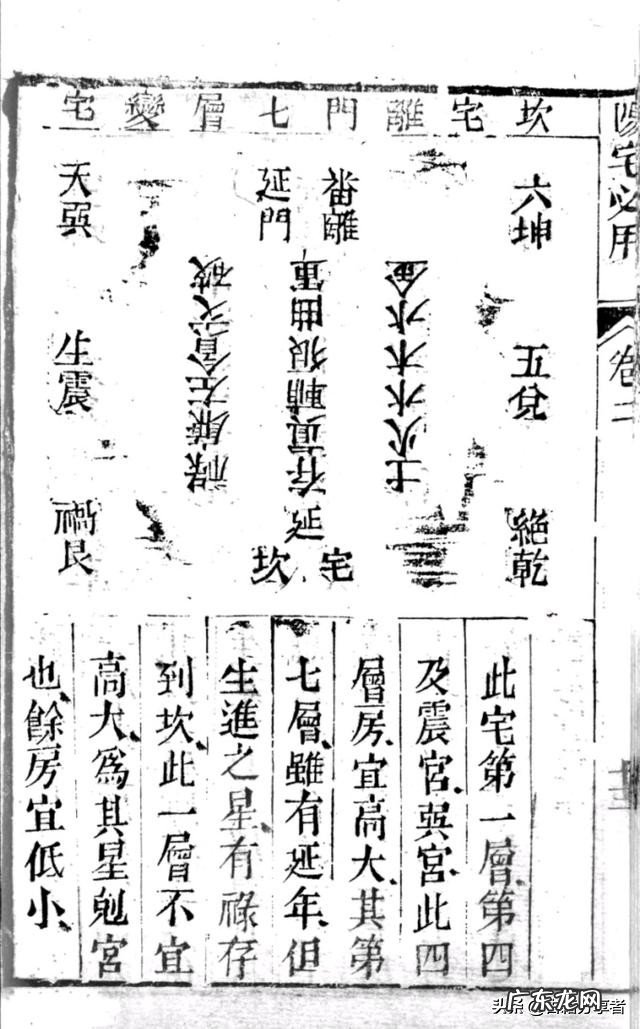 陽宅必用
卷二
坎宅離門七層變宅
六坤
五兌
絕乾
土火木木水金
番離
延門
延存貞輔狼曲軍
宅坎
祿廉左貪文破
天巽
生震
禍艮
此宅第一層、第四
及震宮、巽宮、此四
層房、宜高大、其第
七層、雖有延年、但
生進之星、有祿存
到坎、此一層不宜
高大、為其星剋宮
也、餘房宜低小、
广东龙网